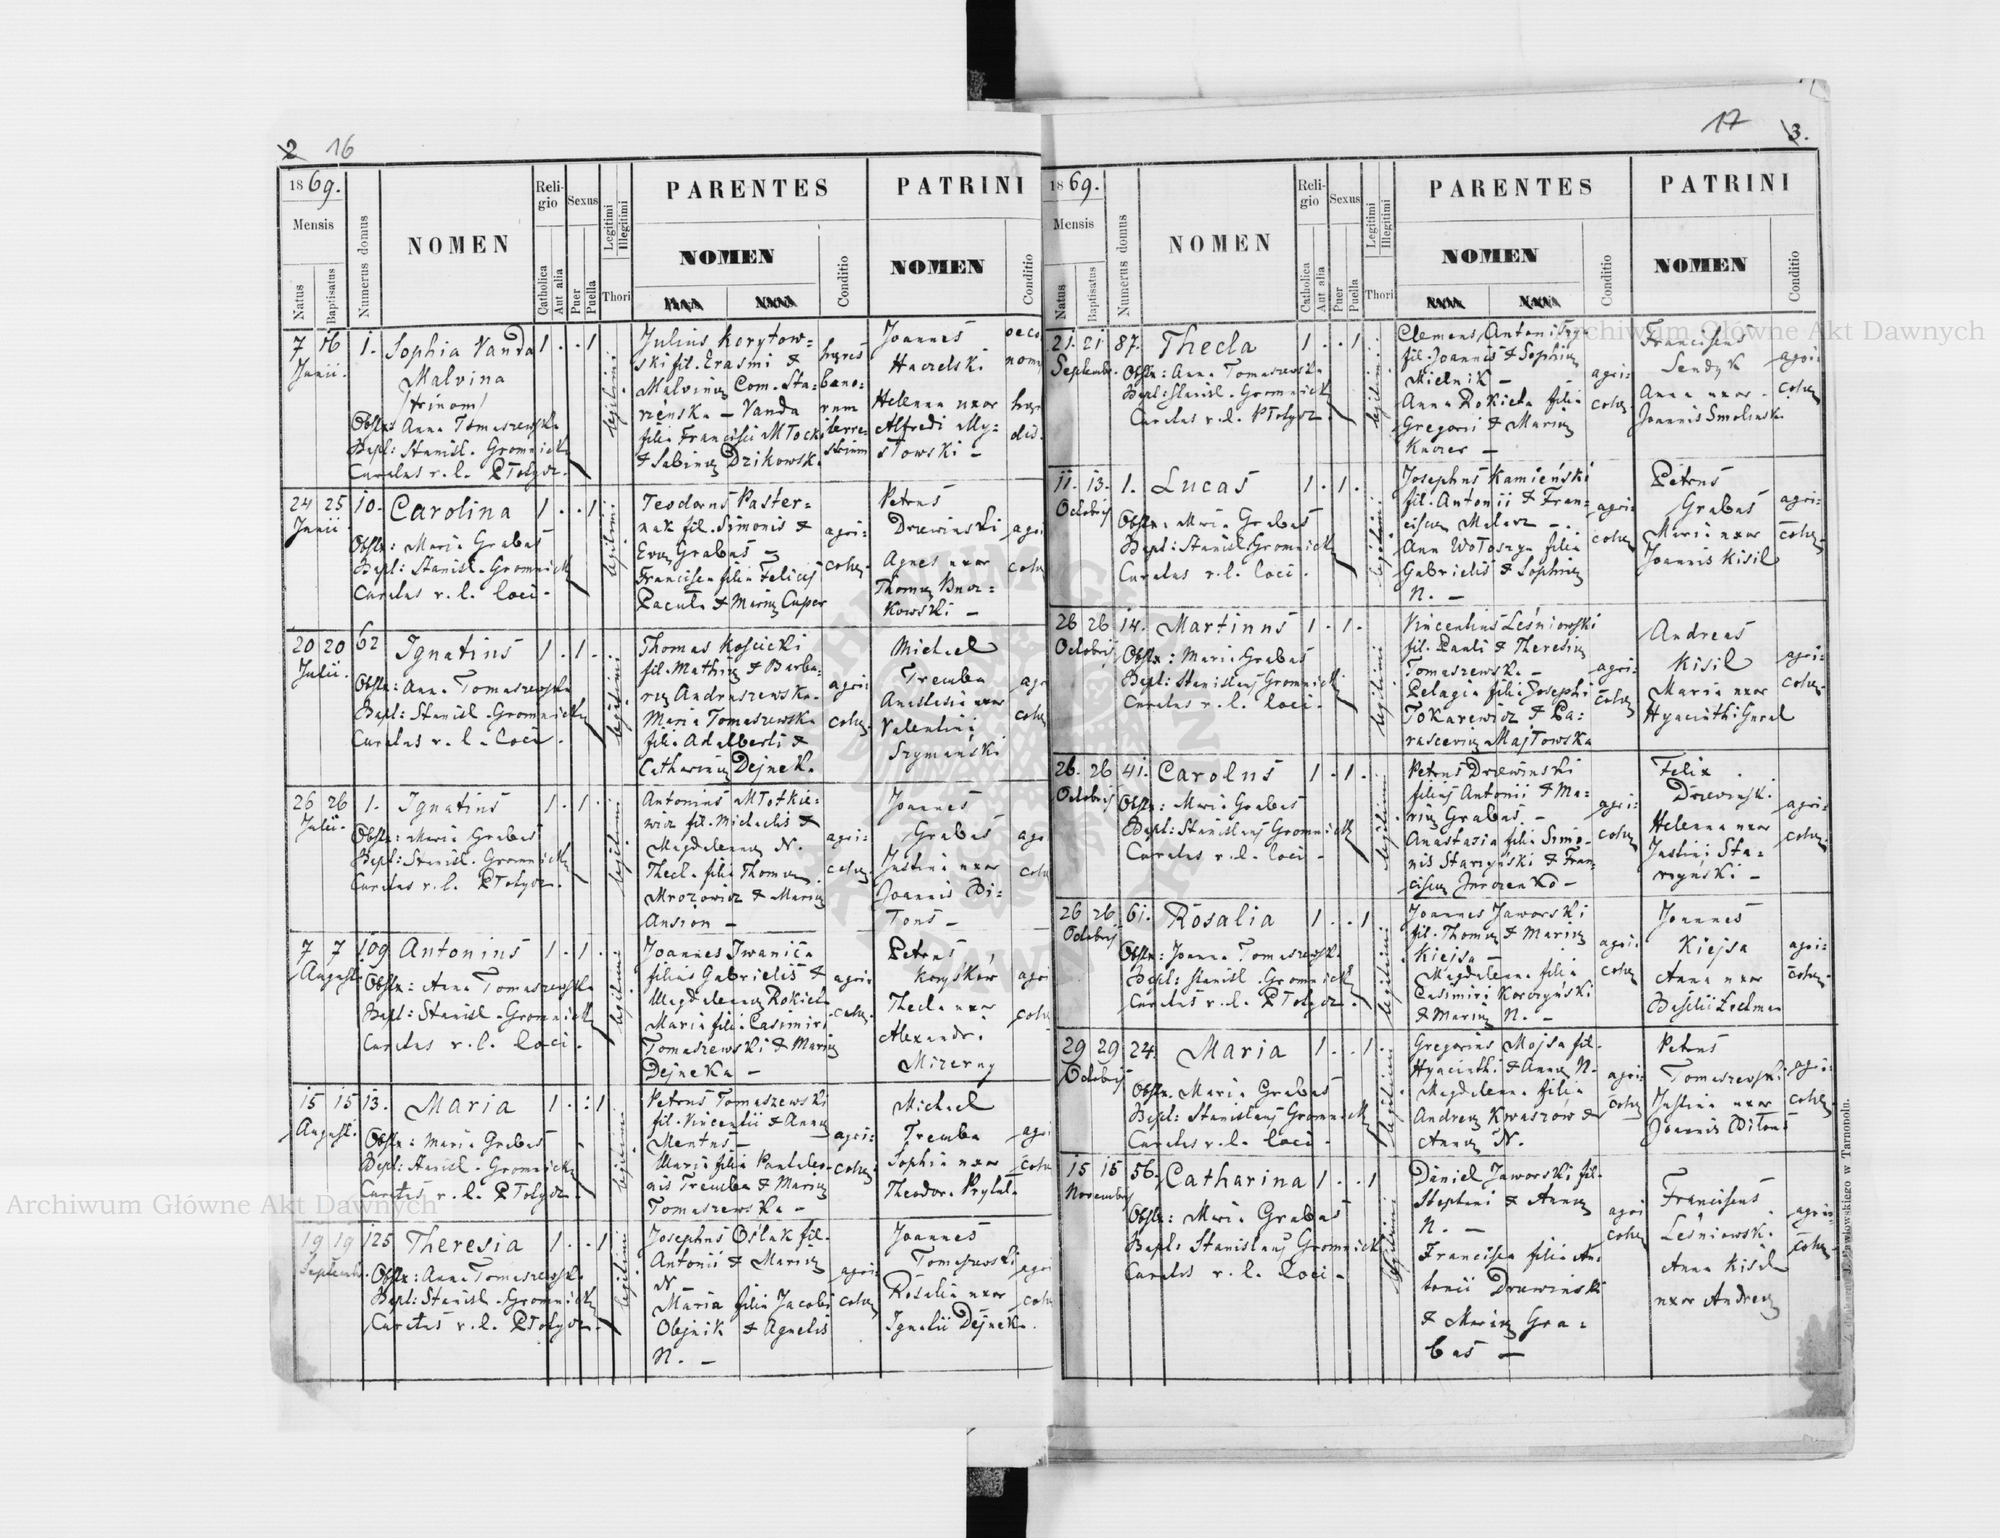 2 16
1869.
Mensis
Natus
Baptisatus
Numerus domus
NOMEN
Religio
Catholica
Aut alia
Sexus
Puer
Puella
Legitimi
Illegitimi
Thori
PARENTES
NOMEN
Conditio
PATRINI
NOMEN
Conditio
7 16 1. Sophia Vanda 1 . . 1
Junii.
Malvina
/trinom/
Obstx: Anna Tomaszewska
Bapt: Stanisl. Gromnicki
Curatus r. l. Płotycz.
legitimi
Julius Korytow=
ski fil. Erasmi &
Malvinæ Com. Sta=
rzenska – Vanda
filia Francisci Młocki
& Sabinæ Dzikowsk.
hæres
bono=
rum
terre=
strium
Joannes
Hawelski
Helenna uxor
Alfredi My=
słowski –
24 25 10. Carolina 1 . . 1
Junii
Obstx: Maria Grabas
Bapt: Stanisl. Gromnicki
Curatus r. l. loci.
legitimi
Teodorus Paster=
nak fil. Simonis &
Evæ Grabas –
Francisca filia Felicis
Pacuła & Mariæ Cuper
agri=
colæ
Petrus
Drzewinski
Agnes uxor
Thomæ Bur=
kowski –
20 20 62 Ignatius 1 . 1 .
Julii.
Obstx: Anna Tomaszewska
Bapt: Stanisl. Gromnicki
Curatus r. l. loci.
legitimi
Thomas Kościcki
fil. Mathiæ & Barba=
ræ Andruszewska.
Maria Tomaszewska
filia Adalberti &
Catharinæ Dejneka.
agri
colæ.
Michael
Tremba
Anastasia uxor
Valentini
Szymanski
26 26 1. Ignatius 1 . 1 .
Julii.
Obstx: Maria Grabas
Bapt: Stanisl. Gromnicki
Curatus r. l. Płotycz.
legitimi
Antonius Młotkie=
wicz fil. Michaelis &
Magdalennæ N.
Thecla filia Thomæ
Mrozowicz & Mariæ
Ansion –
agri=
colæ.
Joannes
Grabas
Justina uxor
Joannis Bi=
tons –
7 7 109 Antonius 1 . 1 .
August.
Obstx: Anna Tomaszewska
Bapt: Stanisl. Gromnicki
Curatus r. l. loci.
legitimi
Joannes Iwanica
filius Gabrielis &
Magdalennæ Rokieta
Maria filia Casimiri
Tomaszewski & Mariæ
Dejneka –
agri=
colæ.
Petrus
Koryśków
Thecla uxor
Alexandri
Mizerny
15 15 13. Maria 1 . : 1
August.
Obstx: Maria Grabas
Bapt: Stanisl. Gromnicki
Curatus r. l. Płotycz.
legitimi
Petrus Tomaszewski
fil. Vincentii & Annæ
Mentus –
Maria filia Pantaleo=
nis Tremba & Mariæ
Tomaszewska –
agri=
colæ
Michael
Tremba
Sophia uxor
Theodori Prytuł.
19 19 125 Theresia 1 . . 1
Septembr.
Obstx: Anna Tomaszewsk.
Bapt: Stanisl. Gromnicki
Curatus r. l. Płotycz.
legitimi
Josephus Oślak fil.
Antonii & Mariæ
N –
Maria filia Jacobi
Olejnik & Agnetis
N. –
agri=
colæ
Joannes
Tomaszewski
Rosalia uxor
Ignatii Dejnek.
17 3.
1869.
Mensis
Natus
Baptisatus
Numerus domus
NOMEN
Religio
Catholica
Aut alia
Sexus
Puer
Puella
Legitimi
Illegitimi
Thori
PARENTES
NOMEN
Conditio
PATRINI
NOMEN
Conditio
21. 21 87. Thecla 1 . . 1
Septembr.
Obstx: Anna Tomaszewska
Bapt: Stanisl. Gromnicki
Curatus r. l. Płotycz
legitimi
Clemens Antoniszyn
fil. Joannis & Sophiæ
Mielnik –
Anna Rokieta filia
Gregorii & Mariæ
Kuczer –
agri=
colæ
Franciscus
Sendyk
Anna uxor
Joannis Smolinsk.
agri=
colæ.
11. 13. 1. Lucas 1 . 1 .
Octobris
Obstx: Maria Grabas
Bapt: Stanisl. Gromnicki
Curatus r. l. loci.
legitimi
Josephus Kamieński
fil. Antonii & Fran=
ciscæ Malarz –
Anna Wołoszyn filia
Gabrielis & Sophiæ
N. –
agri=
colæ
Petrus
Grabas
Maria uxor
Joannis Kisil
agri=
colæ.
26 26 14. Martinus 1 . 1 .
Octobris
Obstx: Maria Grabas
Bapt: Stanislaus Gromnicki
Curatus r. l. loci.
legitimi
Vincentius Leśniowski
fil. Pauli & Theresiæ
Tomaszewska –
Pelagia filia Josephi
Tokarewicz & Pa=
rasceviæ Majłowska
agri=
colæ
Andreas
Kisil
Maria uxor
Hyacinthi Gural
agri=
colæ.
26. 26 41. Carolus 1 . 1 .
Octobris
Obstx: Maria Grabas
Bapt: Stanislaus Gromnicki
Curatus r. l. loci –
legitimi
Petrus Drzewinski
filius Antonii & Ma=
riæ Grabas –
Anastasia filia Simo=
nis Starzyński & Fran=
ciscæ Jurozenko –
agri=
colæ
Felix
Drzewinski
Helenna uxor
Justini Sta=
rzyński –
agri=
colæ.
26 26 61. Rosalia 1 . . 1
Octobris
Obstx: Joanna Tomaszewsk.
Bapt: Stanisl. Gromnicki
Curatus r. l. Płotycz.
legitimi
Joannes Jaworski
fil. Thomæ & Mariæ
Kiejsa –
Magdalenna filia
Casimiri Korczyński
& Mariæ N. –
agri=
colæ
Joannes
Kiejsa
Anna uxor
Basilii Lechman
agri=
colæ.
29 29 24. Maria 1 . . 1
Octobris
Obstx. Maria Grabas
Bapt: Stanislaus Gromnicki
Curatus r. l. loci.
legitimi
Gregorius Mojsa fil.
Hyacinthi & Annæ N.
Magdalena filia
Andreæ Kwaszów &
Annæ N.
agri=
colæ
Petrus
Tomaszewski
Justina uxor
Joannis Bitons
agri=
colæ.
15 15 56. Catharina 1 . . 1
Novembris
Obstx: Maria Grabas
Bapt: Stanislaus Gromnicki
Curatus r. l. loci.
legitimi
Daniel Jaworski fil.
Stephani & Annæ
N. –
Francisca filia An=
tonii Drzewinski
& Mariæ Gra=
bas –
agri
colæ
Franciscus
Leśniowsk.
Anna Kisil
uxor Andreæ
agri=
colæ.
J. Pawłowskiego w Tarnopolu.
Archiwum Główne Akt Dawnych
Archiwum Główne Akt Dawnych